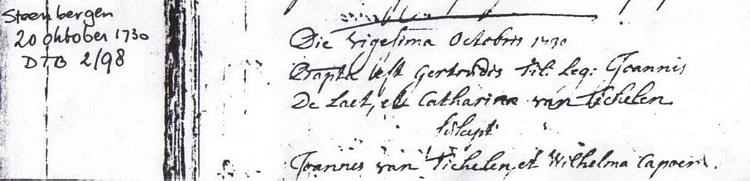 Steenbergen
20 oktober 1730
DTB 2/98
Die Vigesima Octobris 1730
Bapta est Gertrudis fil: leg: Joannis
De Laet, et Catharinæ van Tichelen
suscept
Joannes van Tichelen et Wilhelma Capoen.